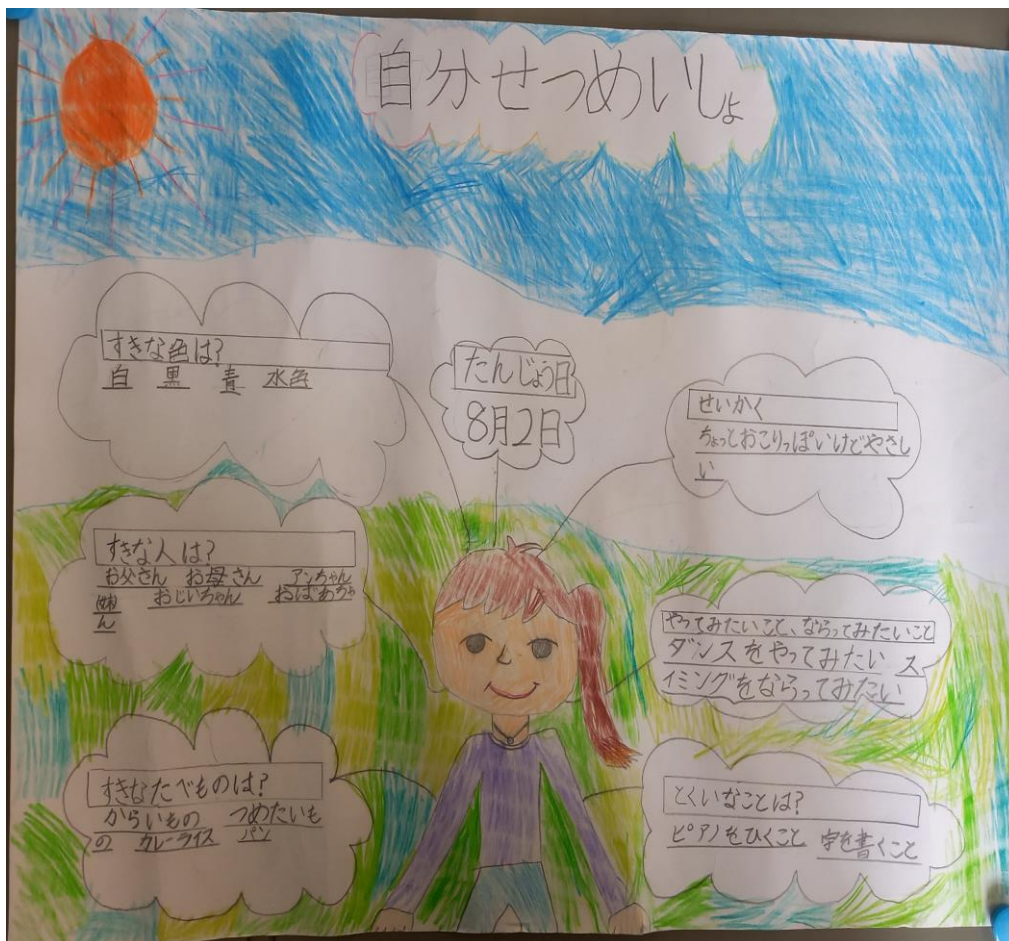 自分せつめいしょ
すきな色は?
白 黒 青 水色
たんじょう日
8月2日
せいかく
ちょっとおこりっぽいけどやさし
い
すきな人は?
お父さん お母さん アンちゃん
姉 おじいちゃん おばあちゃ
ん
やってみたいこと、ならってみたいこと
ダンスをやってみたい ス
イミングをならってみたい
すきなたべものは?
からいもの つめたいも
の カレーライス パン
とくいなことは?
ピアノをひくこと 字を書くこと